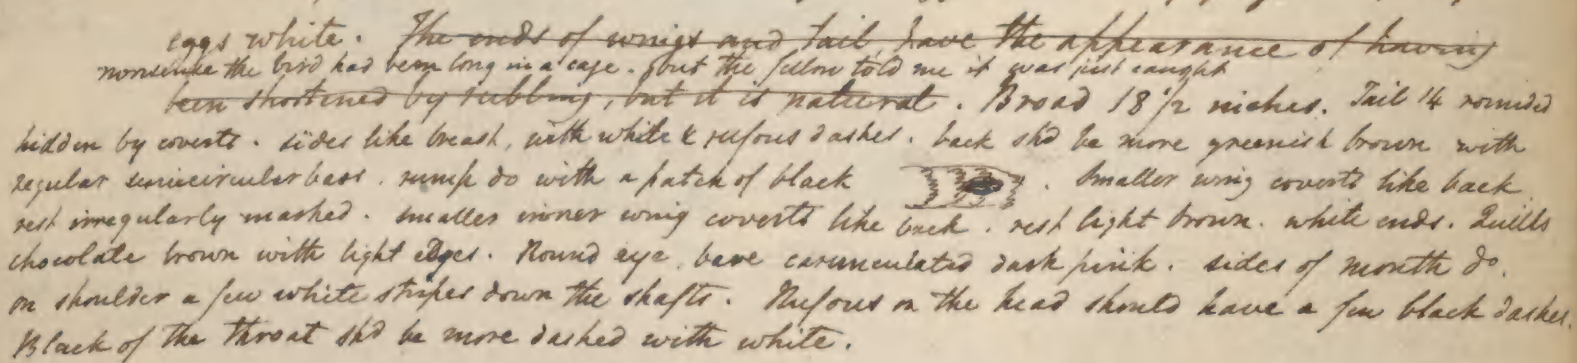 eggs white. The ends of wings and tail, have the appearance of having
nonsense the bird had been long in a cage. but the fellow told me it was just caught
been shortened by rubbing, but it is natural. Broad 18 1/2 inches. Tail 14 rounded
hidden by coverts. sides like breast, with white & rufous dashes. back shd be more greenish brown with
regular semicircular bars. rump do with a patch of black . Smaller wing coverts like back
rest irregularly marked. smaller inner wing coverts like back. rest light brown. white ends. Quills
chocolate brown with light edges. Round eye, bare carunculated dark pink. sides of mouth do.
on shoulder a few white stripes down the shafts. Rufous on the head should have a few black dashes.
Black of the throat shd be more dashed with white.